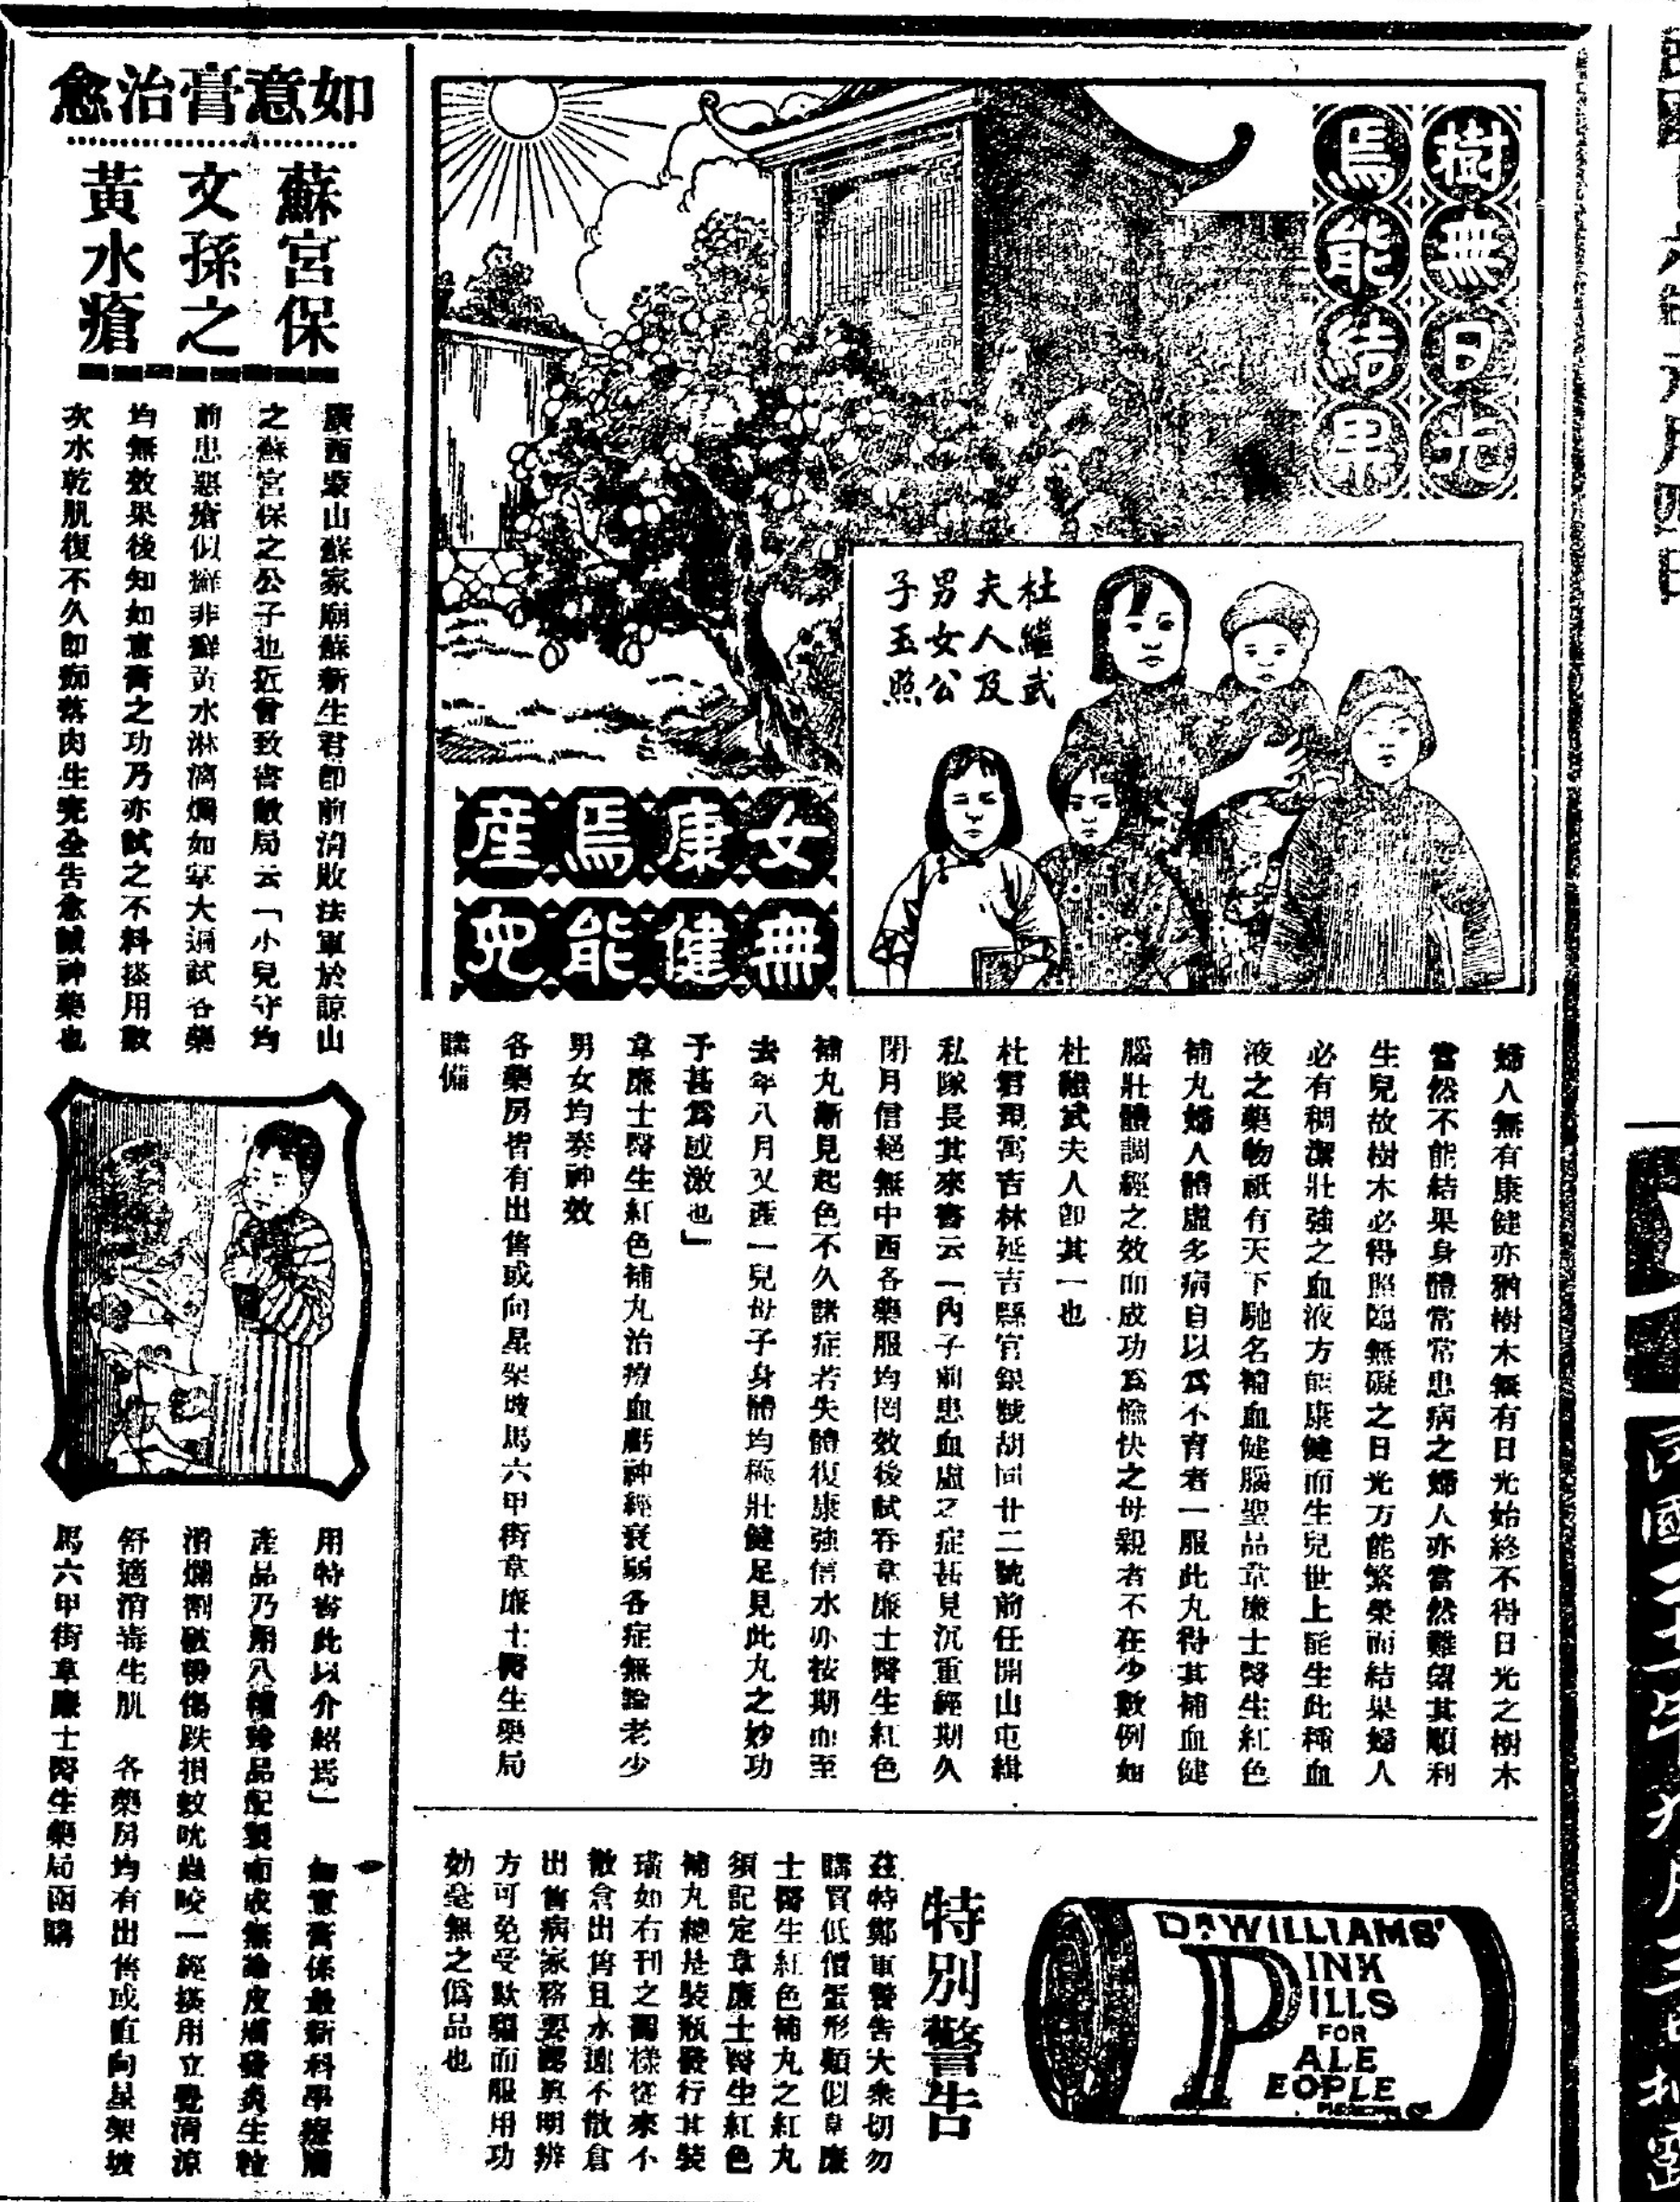 樹無日光
焉能結果
杜繼武
夫人及
男女公
子玉照
女無
康健
焉能
產兒
婦人無有康健亦猶樹木無有日光始終不得日光之樹木
當然不能結果身體常常患病之婦人亦當然難望其順利
生兒故樹木必得照臨無礙之日光方能繁榮而結果婦人
必有稠潔壯強之血液方能康健而生兒世上能生此種血
液之藥物祇有天下馳名補血健腦聖品韋廉士醫生紅色
補丸婦人體虛多病自以為不育者一服此丸得其補血健
腦壯體調經之效而成功為愉快之母親者不在少數例如
杜繼武夫人卽其一也
杜君現寓吉林延吉縣官銀號胡同廿二號前任開山屯緝
私隊長其來書云「內子前患血虛之症甚見沉重經期久
閉月信絕無中西各藥服均罔效後試吞韋廉士醫生紅色
補丸漸見起色不久諸症若失體復康強信水亦按期而至
去年八月又產一兒母子身體均極壯健足見此丸之妙功
予甚為感激也」
韋廉士醫生紅色補丸治療血虧神經衰弱各症無論老少
男女均奏神效
各藥房皆有出售或向星架坡馬六甲街韋廉士醫生藥局
購備
DR WILLIAMS'
PINK
PILLS
FOR
PALE
PEOPLE
特別警告
茲特鄭重警告大衆切勿
購買低價蛋形類似韋廉
士醫生紅色補丸之紅丸
須記定韋廉士醫生紅色
補丸總是裝瓶發行其裝
璜如右刊之圖樣從來不
散倉出售且永遠不散倉
出售病家務要認眞明辨
方可免受欺騙而服用功
効毫無之僞品也
如意膏治愈
蘇宮保
文孫之
黃水瘡
廣西蒙山蘇家廟蘇新生君卽前清敗法軍於諒山
之蘇宮保之公子也近曾致書敝局云「小兒守均
前患惡瘡似癬非癬黃水淋漓爛如掌大遍試各藥
均無效果後知如意膏之功乃亦試之不料搽用數
次水乾肌復不久卽痂落肉生完全告愈誠神藥也
用特書此以介紹焉」 如意膏係最新科學療膚
產品乃用八種珍品配製而成無論皮膚發炎生粒
潰爛割破燙傷跌損蚊吮蟲咬一經搽用立覺清涼
舒適消毒生肌 各藥房均有出售或直向星架坡
馬六甲街韋廉士醫生藥局函購